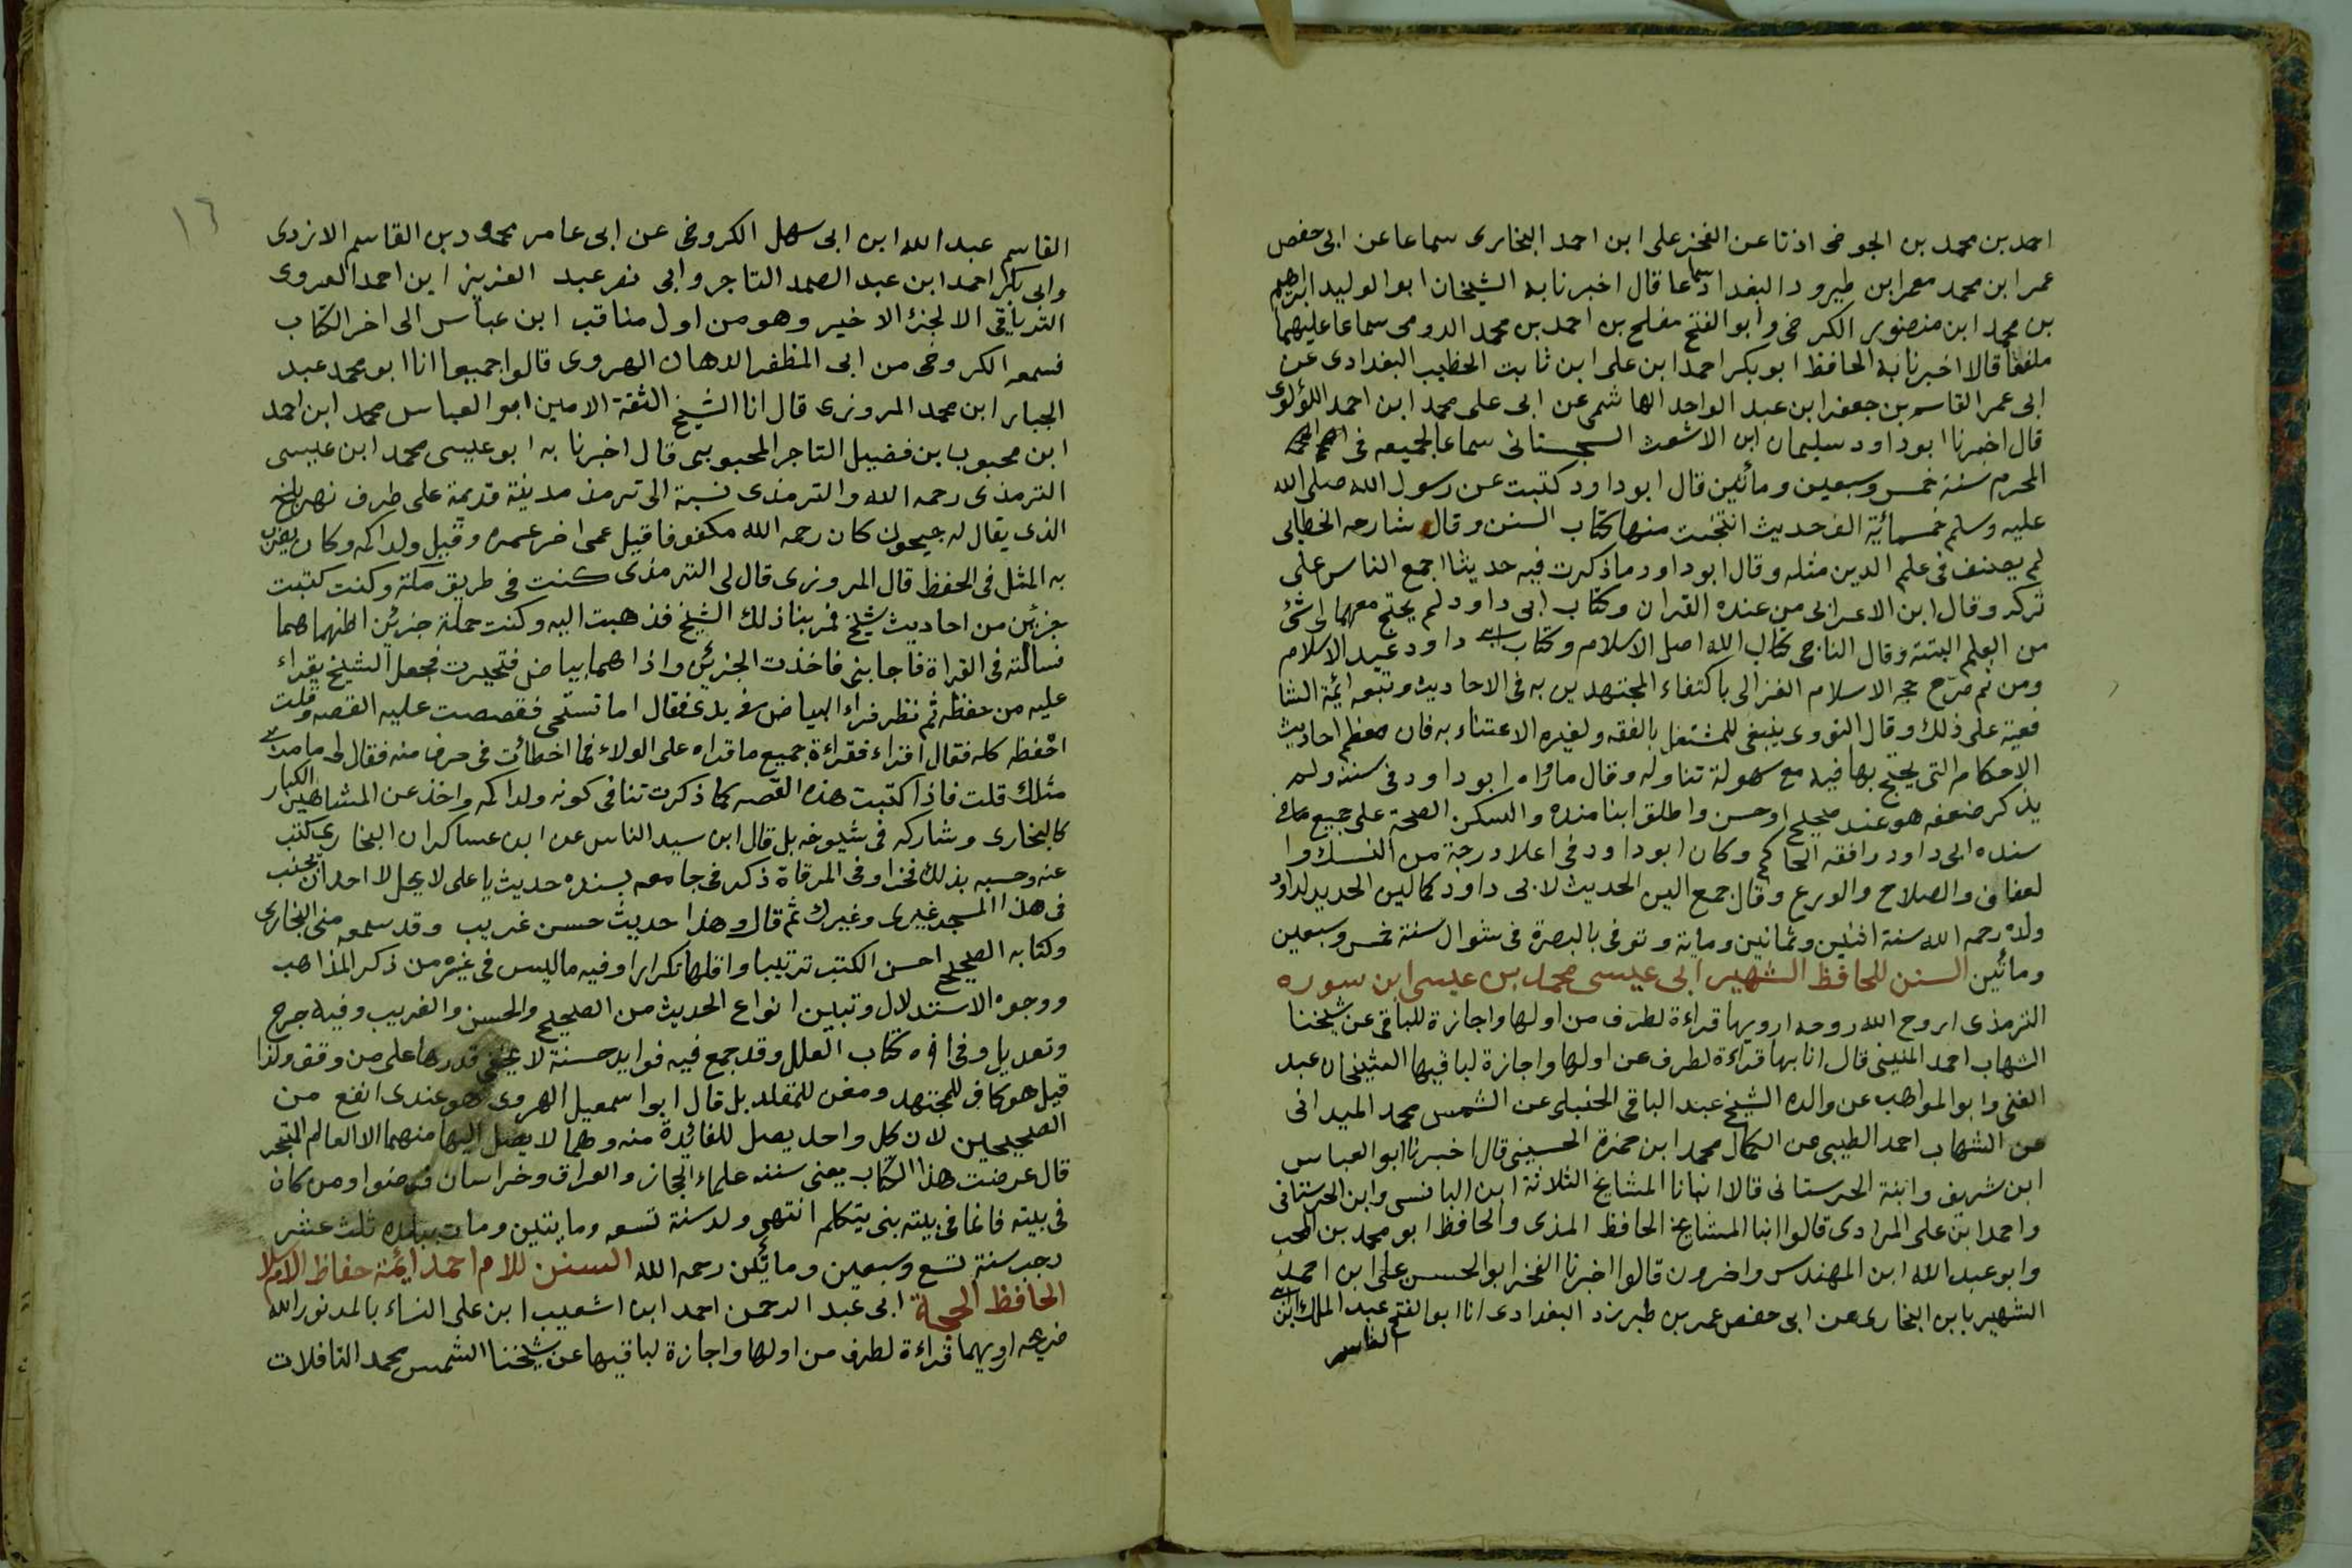 احمد بن محمد بن الجوخى اذنا عن الفخر على ابن احمد البخارى سماعا عن ابى حفص
عمر ابن محمد معمر ابن طبرود البغدادى سماعا قال اخبرنا به الشيخان ابو الوليد ابراهيم
بن محمد ابن منصور الكرخى وابو الفتح مفلح بن احمد بن محمد الدومى سماعا عليهما
ملفقا قالا اخبرنا به الحافظ ابو بكر احمد ابن على ابن ثابت الخطيب البغدادى عن
ابى عمر القاسم بن جعفر ابن عبد الواحد الهاشمى عن ابى على محمد ابن احمد اللؤلوى
قال اخبرنا ابو داود سليمان ابن الاشعث السجستانى سماعا لجميعه فى
المحرم سنة خمس وسبعين ومأتين قال ابو داود كتبت عن رسول الله صلى الله
عليه وسلم خمسمائية الف حديث انتخبت منها كتاب السنن وقال شارحه الخطابى
لم يصنف فى علم الدين مثله وقال ابو داود ما ذكرت فيه حديثا اجمع الناس على
تركه وقال ابن الاعرابى من عنده القران وكتاب ابى داود لم يحتج معهما لى شئ
من العلم البتته وقال الناجى كتاب الله اصل الاسلام وكتاب ابى داود عيد الاسلام
ومن ثم صرّح حجه الاسلام الغزالى باكتفاء المجتهدين به فى الاحاديث وتبعه ائمة الشا
فعية على ذلك وقال النووى ينبغى للمشتغل بالفقه ولغيره الاعتناء به فان معظم احاديث
الاحكام التى يحتج بها فيه مع سهولة تناوله وقال مارواه ابو داود فى سننه ولم
يذكر ضعفه هو عند صحيح او حسن واطلق ابنا منده والسكن الصحة على جميع مافى
سنده ابى داود رافقه الحاكم وكان ابو داود فى اعلا درجة من النسك وا
لعفاف والصلاح والورع وقال جمع الين الحديث لابى داود كما لين الحديد لداود
ولد رحمه الله سنة اثنين وثمانين وماية وتوفى بالبصرة فى شوال سنة خمس وسبعين
ومأتين السنن للحافظ الشهير ابى عيسى محمد بن عيسى ابن سوره
الترمذى اروح الله روحه ارويها قراءة لطرف من اولها واجازة للباقى عن شيخنا
الشهاب احمد المنينى قال انا بها قراءة لطرف عن اولها واجازة لباقيها الشيخان عبد
الغنى وابو المواهب عن والده الشيخ عبد الباقى الحنبلى عن الشمس محمد الميدانى
عن الشهاب احمد الطيبى عن الكمال محمد ابن حمزة الحسينى قال اخبرنا ابو العباس
ابن شريف وابنة الحرستانى قالا انبانا المشايخ الثلاثة ابن البانسى وابن الحرستانى
واحمد ابن على المرادى قالوا انبا المشايخ الحافظ المذى والحافظ ابو محمد بن المحب
وابو عبد الله ابن المهندس واخرون قالوا اخبرنا الفخر ابو الحسن على ابن احمد
الشهير بابن البخارى عن ابى حفص عمر بن طبرزد البغدادى انا ابو الفتح عبد الملك ابن ابى
القاسم
١٦
القاسم عبد الله ابن ابى سهل الكروخى عن ابى عامر محمود بن القاسم الازدى
وابى بكر احمد ابن عبد الصمد التاجر وابى نصر عبد العزيز ابن احمد الهروى
الترياقى الا لجزء الاخير وهو من اول مناقب ابن عباس الى اخر الكتاب
فسمعه الكروخى من ابى المظفر الدهان الهروى قالوا جميعا انا ابو محمد عبد
الجبار ابن محمد المروزى قال انا الشيخ الثقة الامين ابو العباس محمد ابن احمد
ابن محبوب بن فضيل التاجر المحبوبى قال اخبرنا به ابو عيسى محمد ابن عيسى
الترمذى رحمه الله والترمذى نسبة الى ترمذ مدينة قديمة على طرف نهر بلخ
الذى يقال له جيحون كان رحمه الله مكفوفا قيل عمى اخر عمره وقيل ولد اكمه وكان يضرب
به المثل فى الحفظ قال المروزى قال لى الترمذى كنت فى طريق مكة وكنت كتبت
جزئين من احاديث شيخ فمر بنا ذلك الشيخ فذهبت اليه وكنت حملة جزئين اظنهما هما
فسالته فى القراة فاجابنى فاخذت الجزئين واذا هما بياض فتحيرت فجعل الشيخ يقراء
عليه من حفظه ثم نظر فراء البياض فى يدى فقال اما تستحى فقصصت عليه القصه وقلت
احفظه كله فقال اقراء فقراءة جميع ما قراه على الولاء فما اخطات فى حرف منه فقال لى ما مر بى
مثلك قلت فاذا كتبت هذه القصه كما ذكرت تنافى كونه ولد اكمه واخذ عن المشاهير الكبار
كالبخارى وشاركه فى شيوخه بل قال ابن سيد الناس عن ابن عساكر ان البخارى كتب
عنه وحسبه بذلك فخرا وفى المرقاة ذكر فى جامعه بسنده حديث يا على لا يحل لاحد ان يجنب
فى هذا المسجد غيرى وغيرك ثم قال وهذا حديث حسن غريب وقد سمعه منى البخارى
وكتابه الصحيح احسن الكتب ترتيبا واقلها تكرارا وفيه ما ليس فى غيره من ذكر المذاهب
ووجوه الاستدلال وتبيين انواع الحديث من الصحيح والحسن والغريب وفيه جرح
وتعديل وفى اخره كتاب العلل وقد جمع فيه فوايد حسنة لا يخفى قدرها على من وقف ولذا
قيل هو كاف للمجتهد ومغن للمقلد بل قال ابو اسمعيل الهروى هو عندى انفع من
الصحيحين لان كل واحد يصل للفائدة منه وهما لا يصل اليها منهما الا العالم المتبحر
قال عرضت هذا الكتاب يعنى سننه علماء الحجاز والعراق وخراسان فرضوا ومن كان
فى بيته فانما فى بيته بنى يتكلم انتهى ولد سنة تسعه ومايتين ومات ببلده ثلث عشر
رجب سنة تسع وسبعين ومأتين رحمه الله السنن للام احمد ايئمة حفاظ الاسلام
الحافظ الحجة ابى عبد الرحمن احمد ابن اشعيب ابن على النساء بالمد نور الله
ضريحه ارويهما قراءة لطرف من اولها واجازة لباقيها عن شيخنا الشمس محمد التافلات